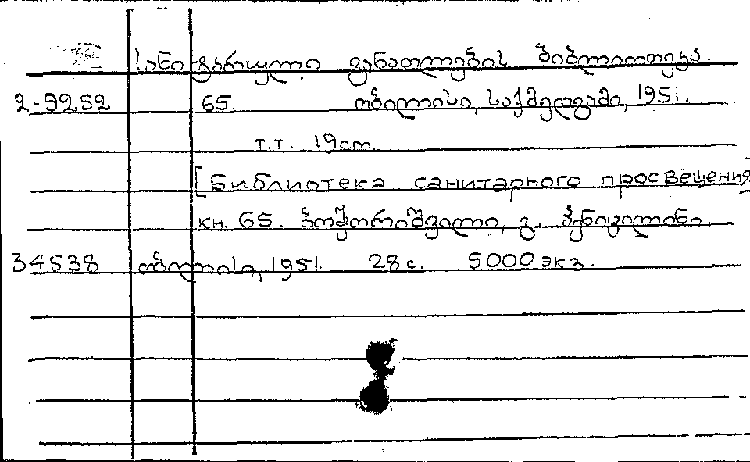 სანიტარული განათლების ბიბლიოთეკა
2-9252 65. თბილისი, საქმედგამი, 1951.
т.т. 19 cm.
[Библиотека санитарного просвещения
кн. 65. გ. პენიცილინი.
34538 თბილისი, 1951. 28 с. 5000 экз.